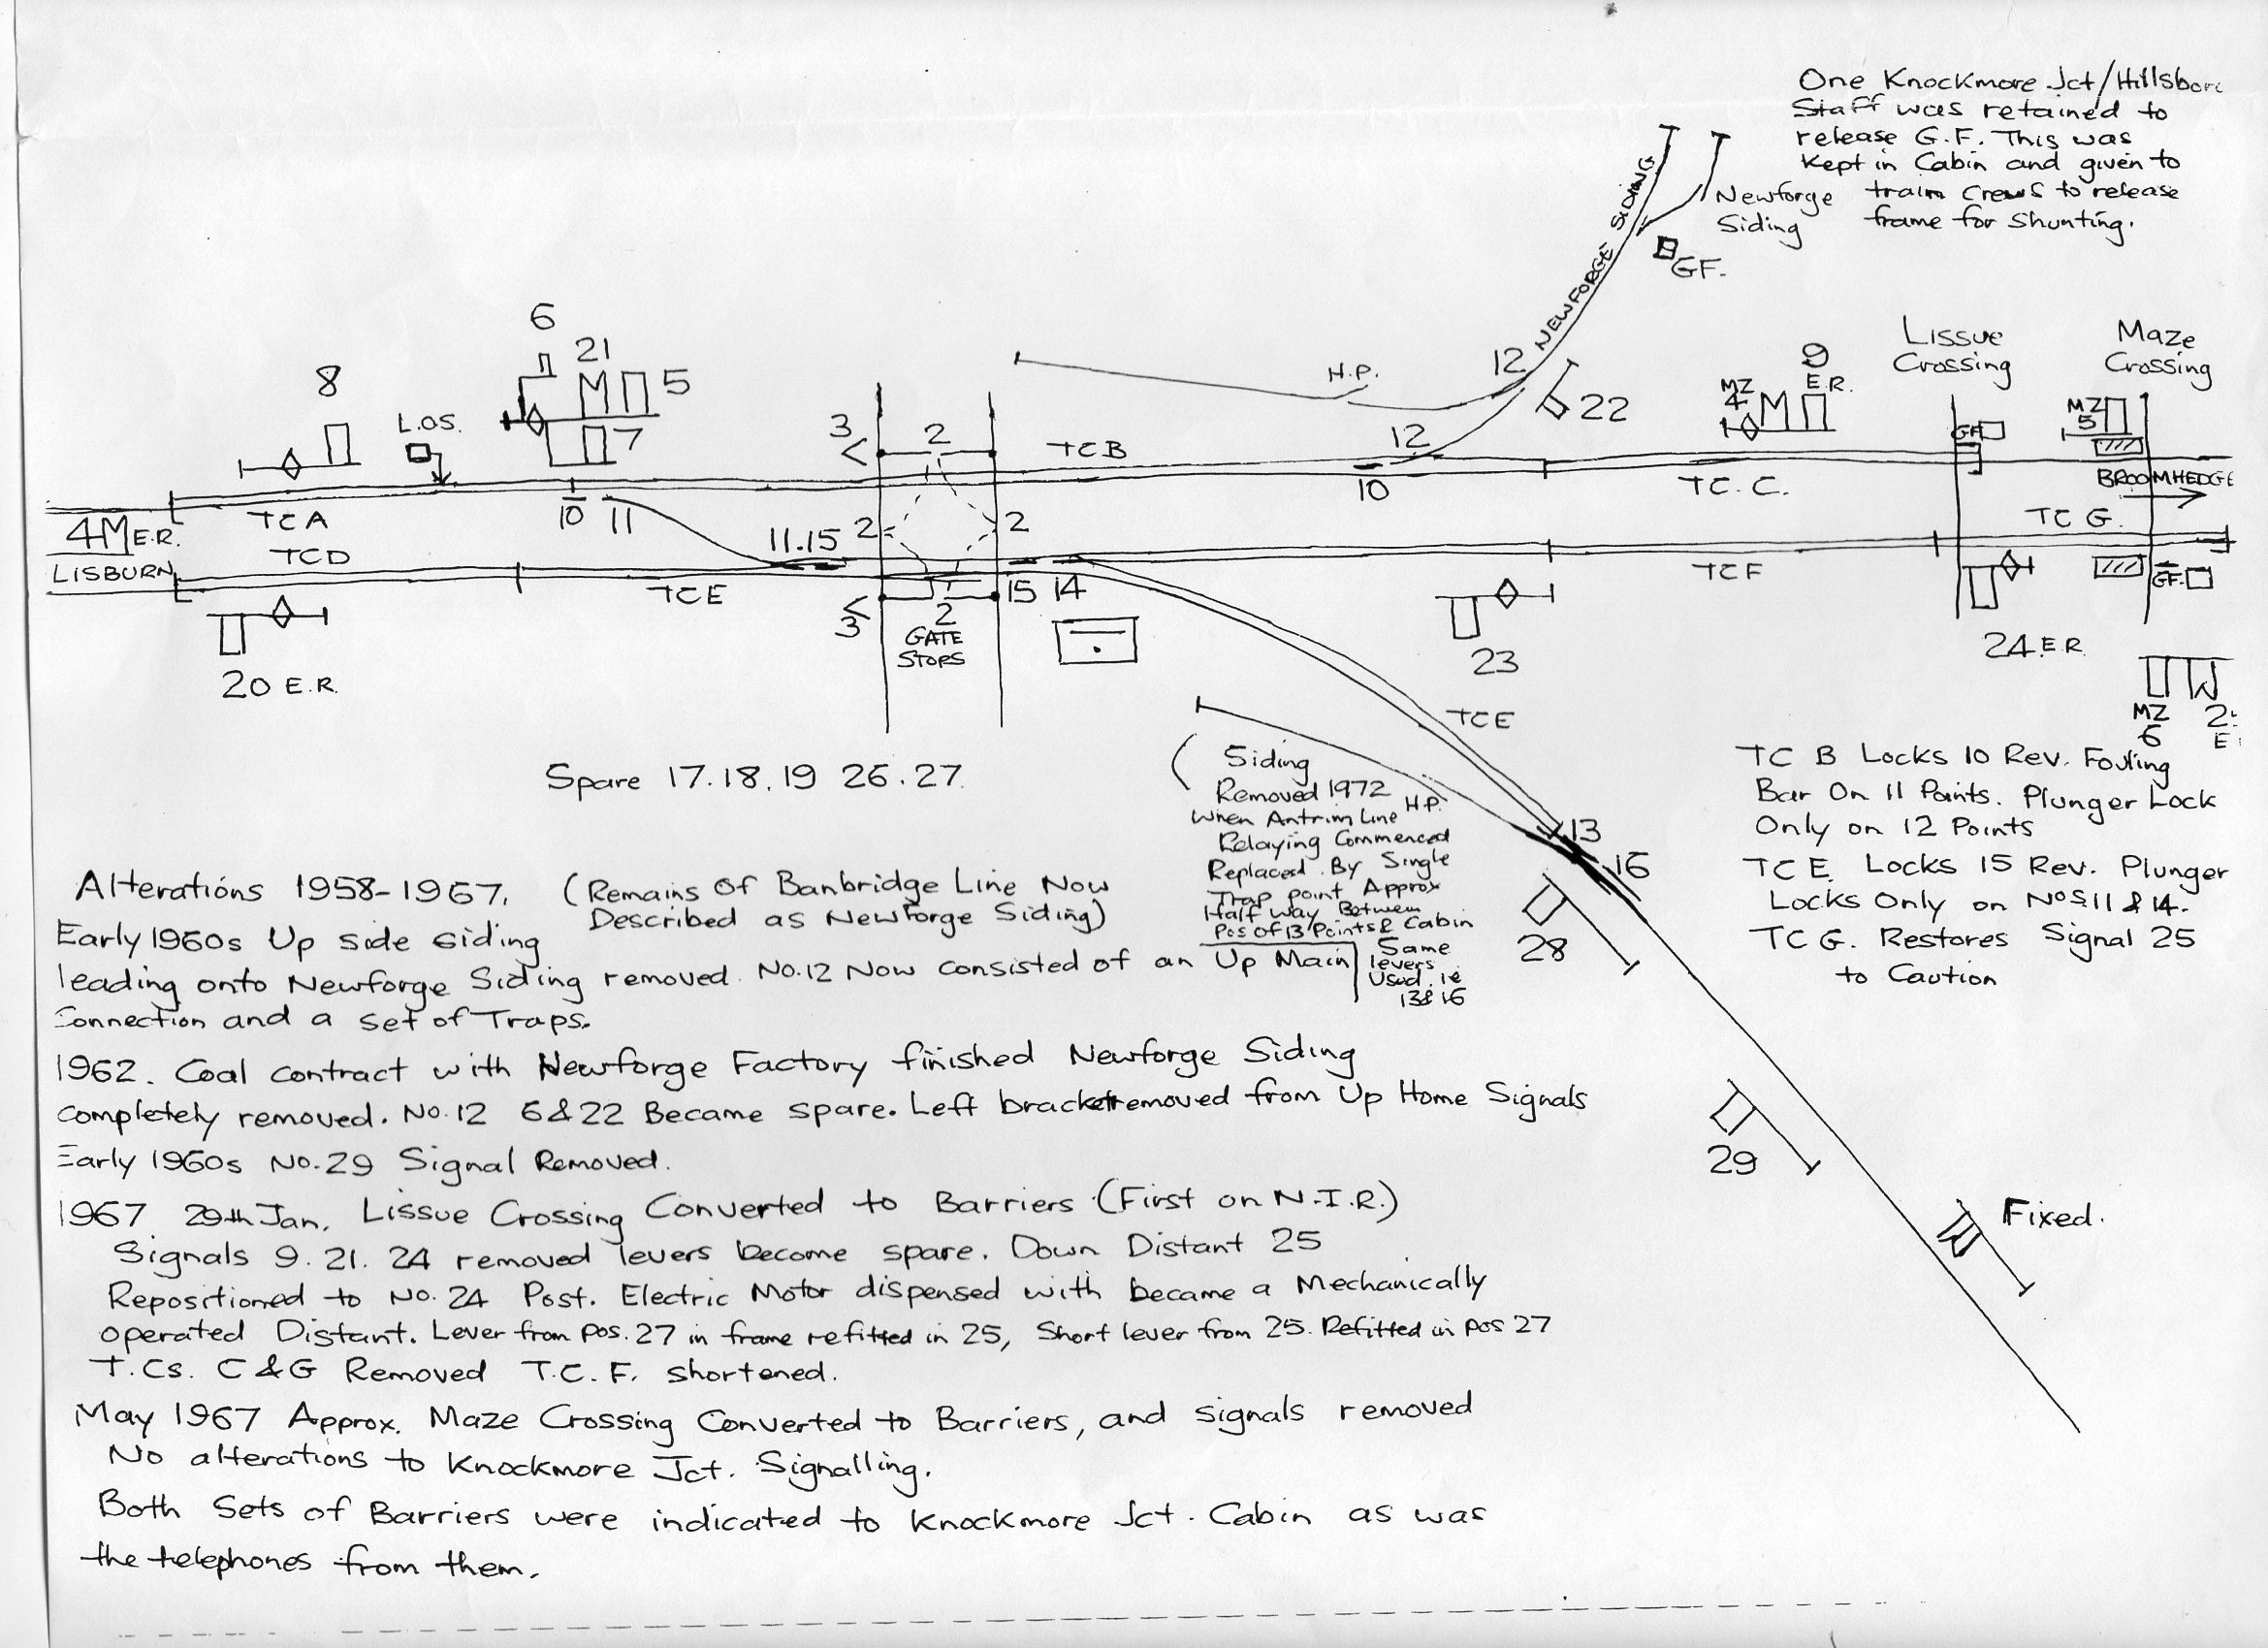 One Knockmore Jct/Hillsboro
Staff was retained to
release G.F. This was
Kept in Cabin and given to
train crews to release
frame for Shunting.
NEWFORGE SIDING
Newforge
Siding
GF.
6
21
5
8
7
L.O.S.
3
2
TCB
H.P.
12
12
22
MZ
4
9
E.R.
Lissue
Crossing
Maze
Crossing
GF
MZ
5
BROOMHEDGE
4M E.R.
TCA
10 11
10
T.C.C.
LISBURN
TCD
11.15
2
2
TC G.
TCE
15 14
TCF
GF.
3
2
GATE
STOPS
20 E.R.
23
24 E.R.
MZ
6
TCE
Spare 17.18.19 26.27.
Siding
Removed 1972
When Antrim Line
H.P.
Relaying Commenced
Replaced By Single
Trap point Approx
Half way Between
Pos of 13 Points & Cabin
Same
levers
Used. ie
13 & 16
13
16
28
29
Fixed.
TC B Locks 10 Rev. Fouling
Bar On 11 Points. Plunger Lock
Only on 12 Points
TC E. Locks 15 Rev. Plunger
Locks Only on Nos 11 & 14.
TC G. Restores Signal 25
to Caution
Alterations 1958-1967. (Remains Of Banbridge Line Now
Described as Newforge Siding)
Early 1960s Up side siding
leading onto Newforge Siding removed. No.12 Now consisted of an Up Main
Connection and a set of Traps.
1962. Coal contract with Newforge Factory finished Newforge Siding
completely removed. No.12 6 & 22 Became spare. Left bracket removed from Up Home Signals
Early 1960s No.29 Signal Removed.
1967 29th Jan. Lissue Crossing Converted to Barriers (First on N.I.R.)
Signals 9. 21. 24 removed levers become spare. Down Distant 25
Repositioned to No. 24 Post. Electric Motor dispensed with became a Mechanically
operated Distant. Lever from pos. 27 in frame refitted in 25, Short lever from 25. Refitted in pos 27
T.Cs. C & G Removed T.C. F. shortened.
May 1967 Approx. Maze Crossing Converted to Barriers, and signals removed
No alterations to Knockmore Jct. Signalling.
Both Sets of Barriers were indicated to Knockmore Jct. Cabin as was
the telephones from them.